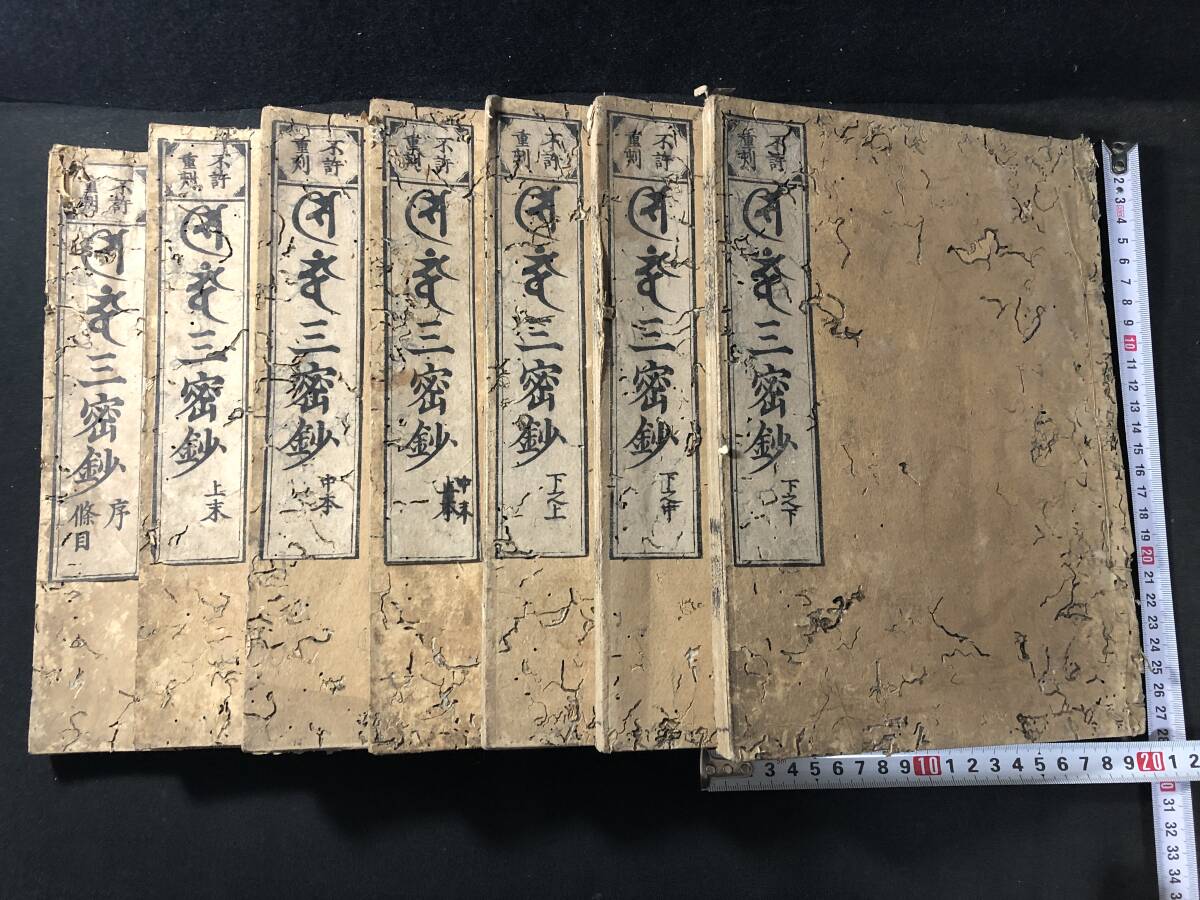 不許
重刻
𑖭𑖰𑖟𑖿𑖠𑖽三密鈔
序
條目
不許
重刻
𑖭𑖰𑖟𑖿𑖠𑖽三密鈔
上末
不許
重刻
𑖭𑖰𑖟𑖿𑖠𑖽三密鈔
中本
不許
重刻
𑖭𑖰𑖟𑖿𑖠𑖽三密鈔
不許
重刻
𑖭𑖰𑖟𑖿𑖠𑖽三密鈔
下之上
不許
重刻
𑖭𑖰𑖟𑖿𑖠𑖽三密鈔
下之中
不許
重刻
𑖭𑖰𑖟𑖿𑖠𑖽三密鈔
下之下
2 3 4 5 6 7 8 9 10 11 12 13 14 15 16 17 18 19 20 21 22 23 24 25 26 27 31 32 33 34
3 4 5 6 7 8 9 10 1 2 3 4 5 6 7 8 9 20 1 2